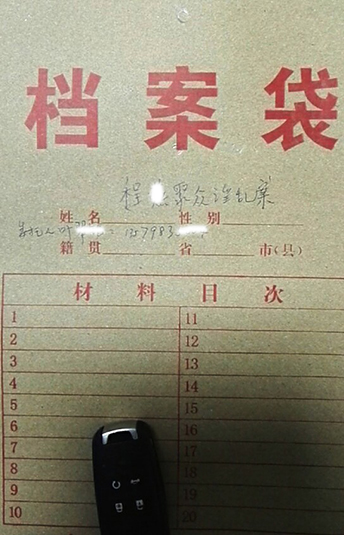 档案袋
程 聚众淫乱案
姓名 性别
委托人叶 : 1379983
籍贯 省 市(县)
材料目次
1 11
2 12
3 13
4 14
5 15
6 16
7 17
8 18
9 19
10 20